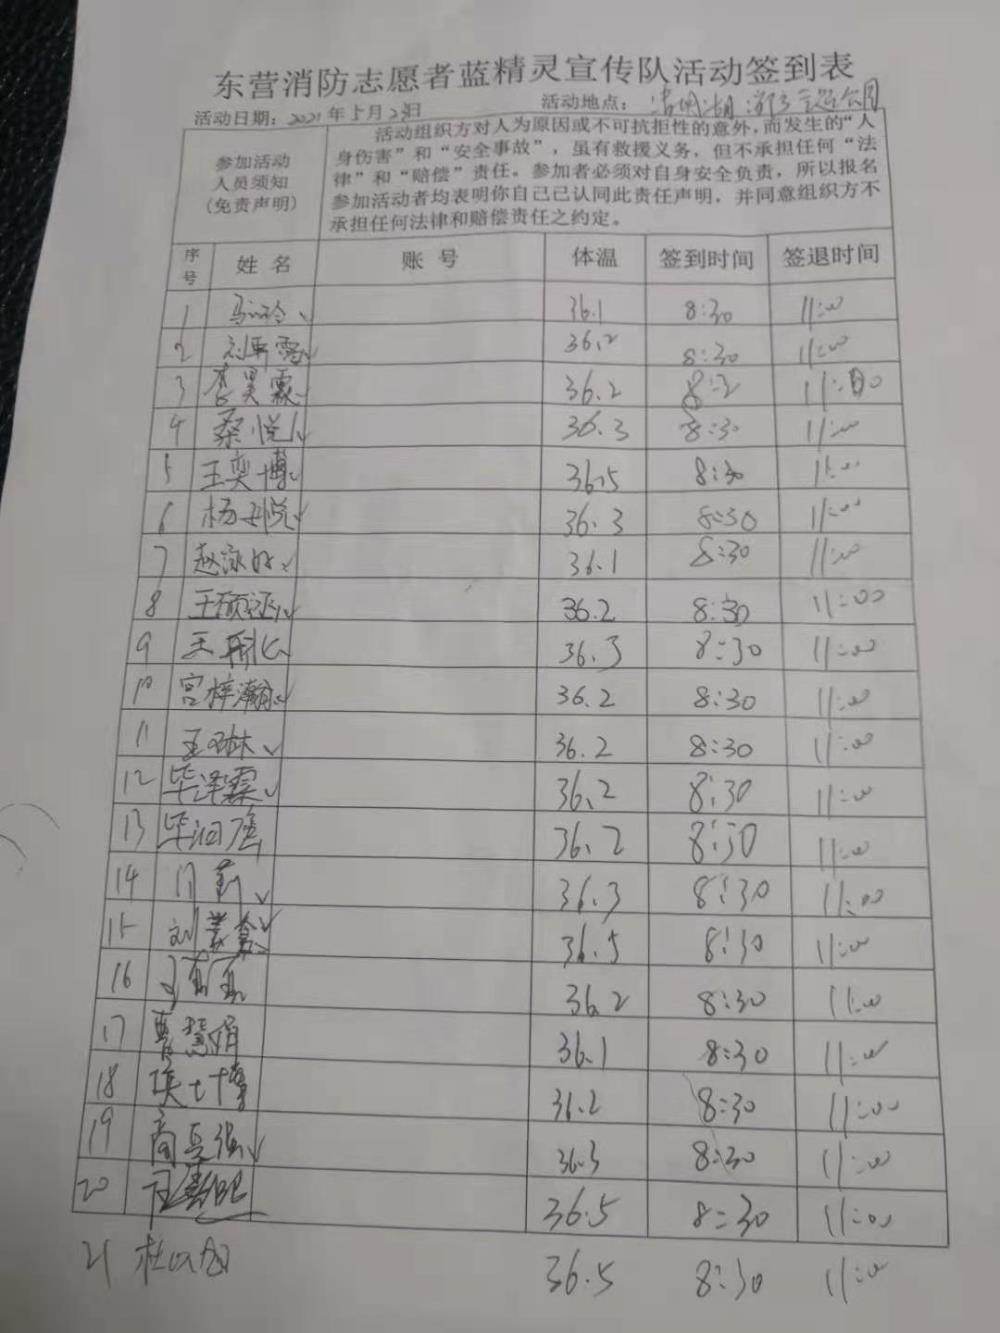 东营消防志愿者蓝精灵宣传队活动签到表
活动日期：2021年5月2日 活动地点：清风湖 主题公园
参加活动
人员须知
(免责声明)
活动组织方对人为原因或不可抗拒性的意外，而发生的“人
身伤害”和“安全事故”，虽有救援义务，但不承担任何“法
律”和“赔偿”责任。参加者必须对自身安全负责，所以报名
参加活动者均表明你自己已认同此责任声明，并同意组织方不
承担任何法律和赔偿责任之约定。
序号 姓名 账号 体温 签到时间 签退时间
1 36.1 8:30 11:00
2 36.2 8:30 11:00
3 李昊霖 36.2 8:2 11:00
4 桑悦 36.3 8:30 11:00
5 王奕博 36.5 8:30 11:00
6 杨 悦 36.3 8:30 11:00
7 赵泳 36.1 8:30 11:00
8 王硕 36.2 8:30 11:00
9 王 36.3 8:30 11:00
10 宫梓瀚 36.2 8:30 11:00
11 王琳 36.2 8:30 11:00
12 毕泽霖 36.2 8:30 11:00
13 毕 36.2 8:30 11:00
14 门莉 36.3 8:30 11:00
15 刘 36.5 8:30 11:00
16 36.2 8:30 11:00
17 曹慧娟 36.1 8:30 11:00
18 36.2 8:30 11:00
19 商 强 36.3 8:30 11:00
20 36.5 8:30 11:00
21 杜 36.5 8:30 11:00